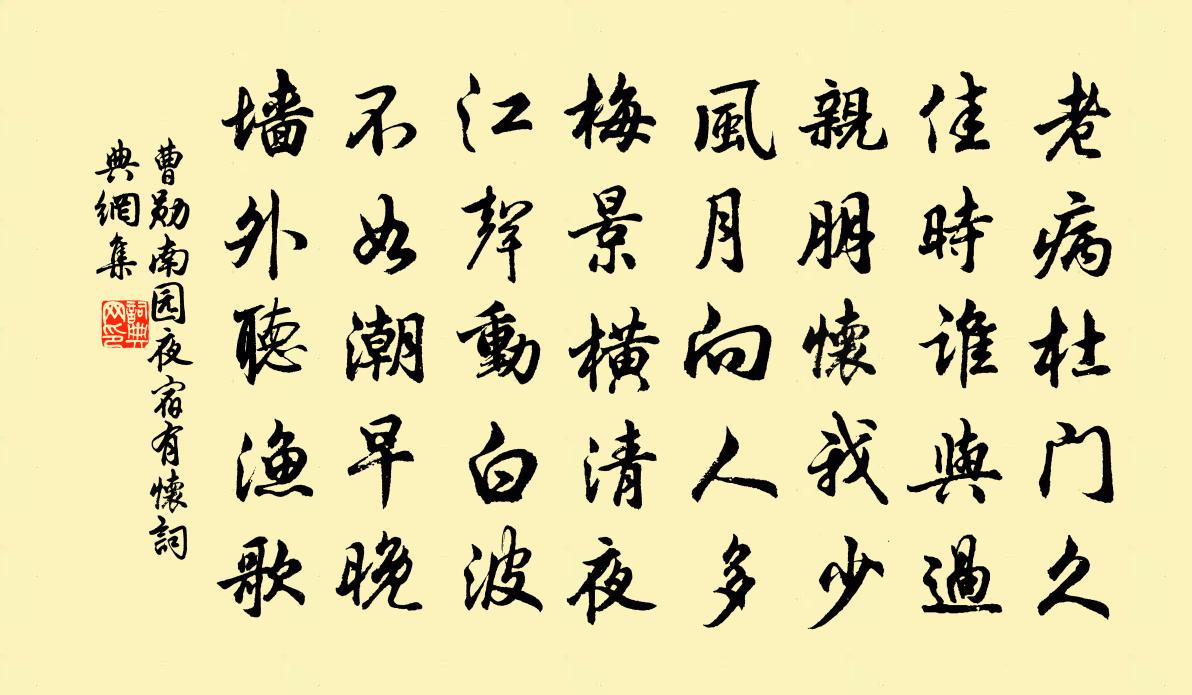 老病杜门久
佳時谁與過
親朋懷我少
風月向人多
梅景橫清夜
江聲動白波
不如潮早晚
墙外聽漁歌
曹勋南园夜宿有懷詞
典網集
詞典
网印